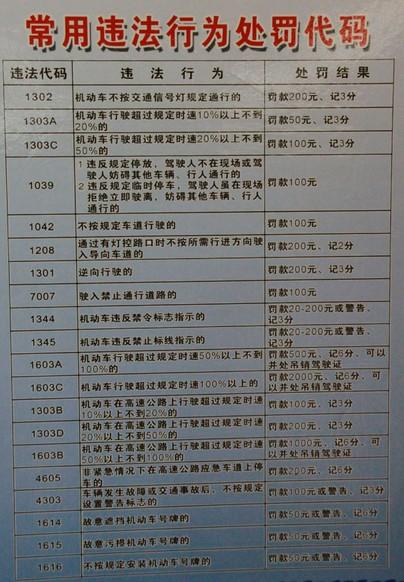 常用违法行为处罚代码
违法代码 违法行为 处罚结果
1302 机动车不按交通信号灯规定通行的 罚款200元、记3分
1303A 机动车行驶超过规定时速10%以上不到 罚款50元、记3分
20%的
1303C 机动车行驶超过规定时速20%以上不到 罚款100元、记3分
50%的
1 违反规定停放，驾驶人不在现场或驾
驶人妨碍其他车辆、行人通行的
1039 2 违反规定临时停车，驾驶人虽在现场 罚款100元
拒绝立即驶离，妨碍其他车辆、行人
通行的
1042 不按规定车道行驶的 罚款100元
1208 通过有灯控路口时不按所需行进方向驶 罚款200元、记2分
入导向车道的
1301 逆向行驶的 罚款200元、记3分
7007 驶入禁止通行道路的 罚款100元
1344 机动车违反禁令标志指示的 罚款20-200元或警告、
记3分
1345 机动车违反禁止标线指示的 罚款20-200元或警告、
记3分
1603A 机动车行驶超过规定时速50%以上不到 罚款500元、记6分、可以
100%的 并处吊销驾驶证
1603C 机动车行驶超过规定时速100%以上的 罚款2000元、记6分、可
以并处吊销驾驶证
1303B 机动车在高速公路上行驶超过规定时速 罚款100元、记3分
10%以上不到20%的
1303D 机动车在高速公路上行驶超过规定时速 罚款200元、记3分
20%以上不到50%的
1603B 机动车在高速公路上行驶超过规定时速 罚款1000元、记6分、
50%以上不到100%的 可以并处吊销驾驶证
4605 非紧急情况下在高速公路应急车道上停 罚款200元、记6分
车的
4303 车辆发生故障或交通事故后，不按规定 罚款100元或警告、记3分
设置警告标志的
1614 故意遮挡机动车号牌的 罚款50元或警告、记6分
1615 故意污损机动车号牌的 罚款50元或警告、记6分
1616 不按规定安装机动车号牌的 罚款50元或警告、记6分